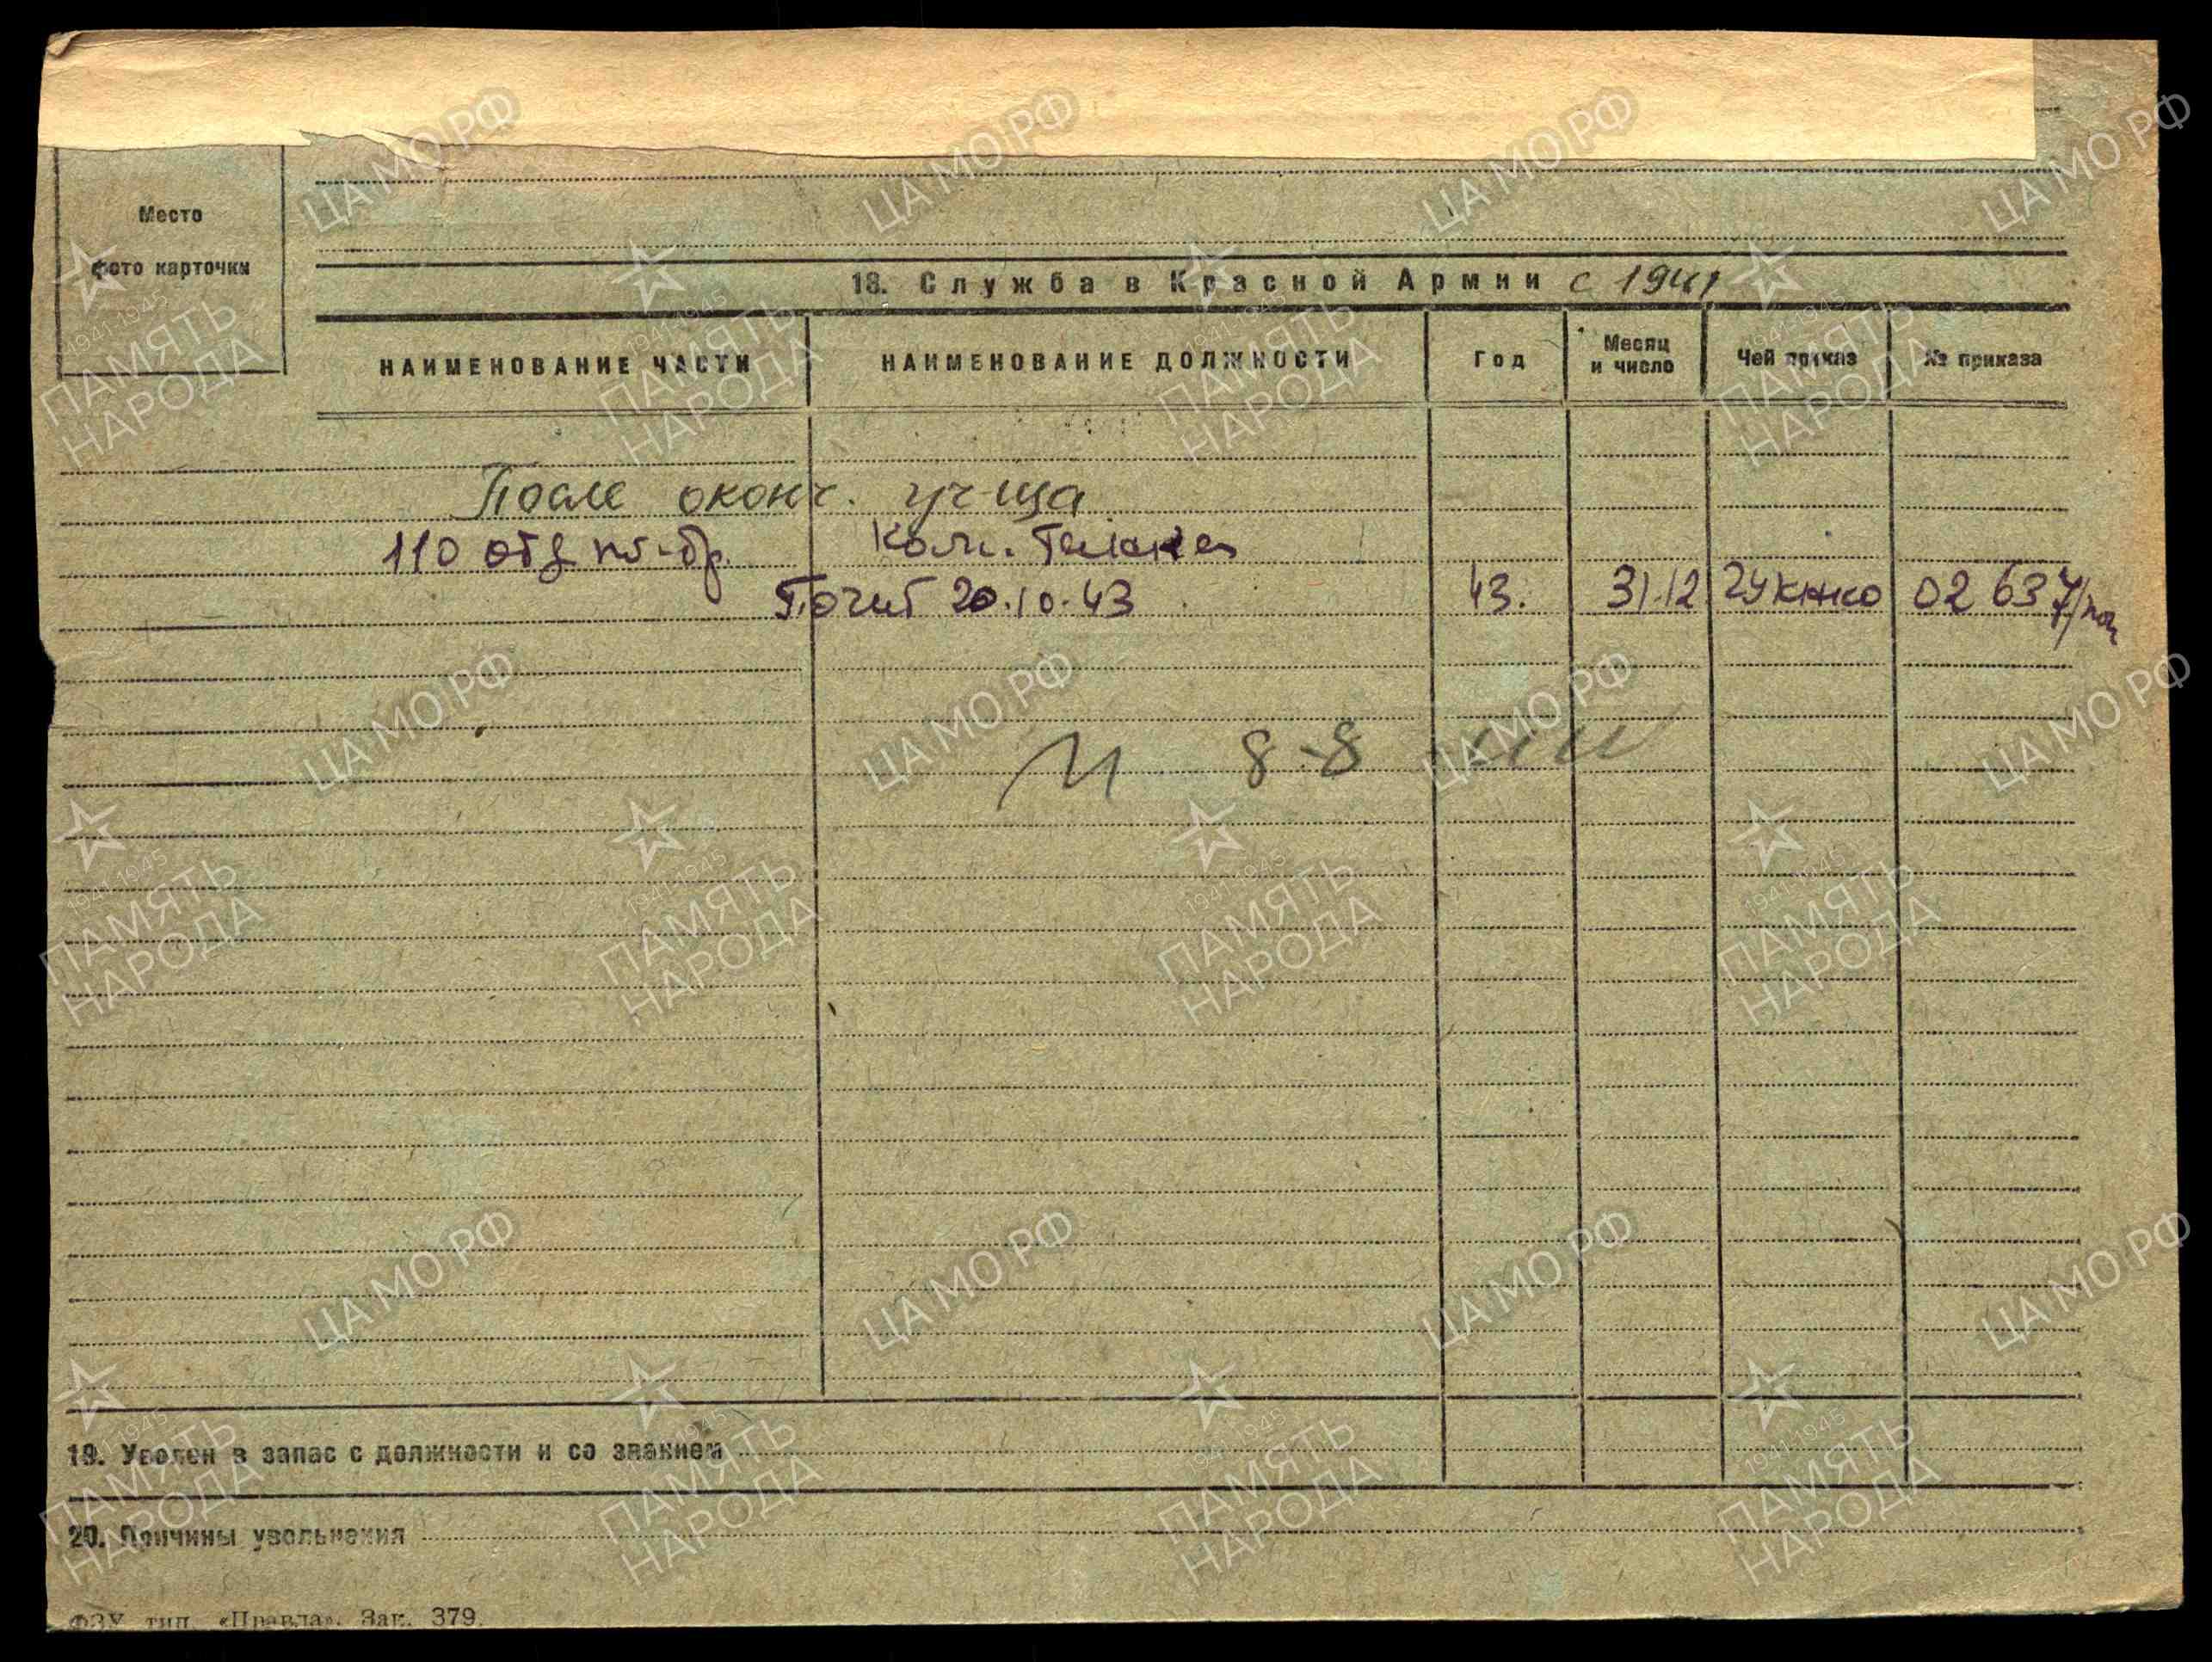 Место
фото карточки
18. Служба в Красной Армии с 1941
НАИМЕНОВАНИЕ ЧАСТИ НАИМЕНОВАНИЕ ДОЛЖНОСТИ Год Месяц и число Чей приказ № приказа
После оконч. уч-ща
110 отд тт-бр. Ком. Танка
Погиб 20.10.43 43. 31.12 ГУКНКО 02637/пог
19. Уволен в запас с должности и со званием
20. Причины увольнения
ФЗУ тип. «Правда». Зак. 379.
ЦА МО РФ
1941-1945
ПАМЯТЬ
НАРОДА